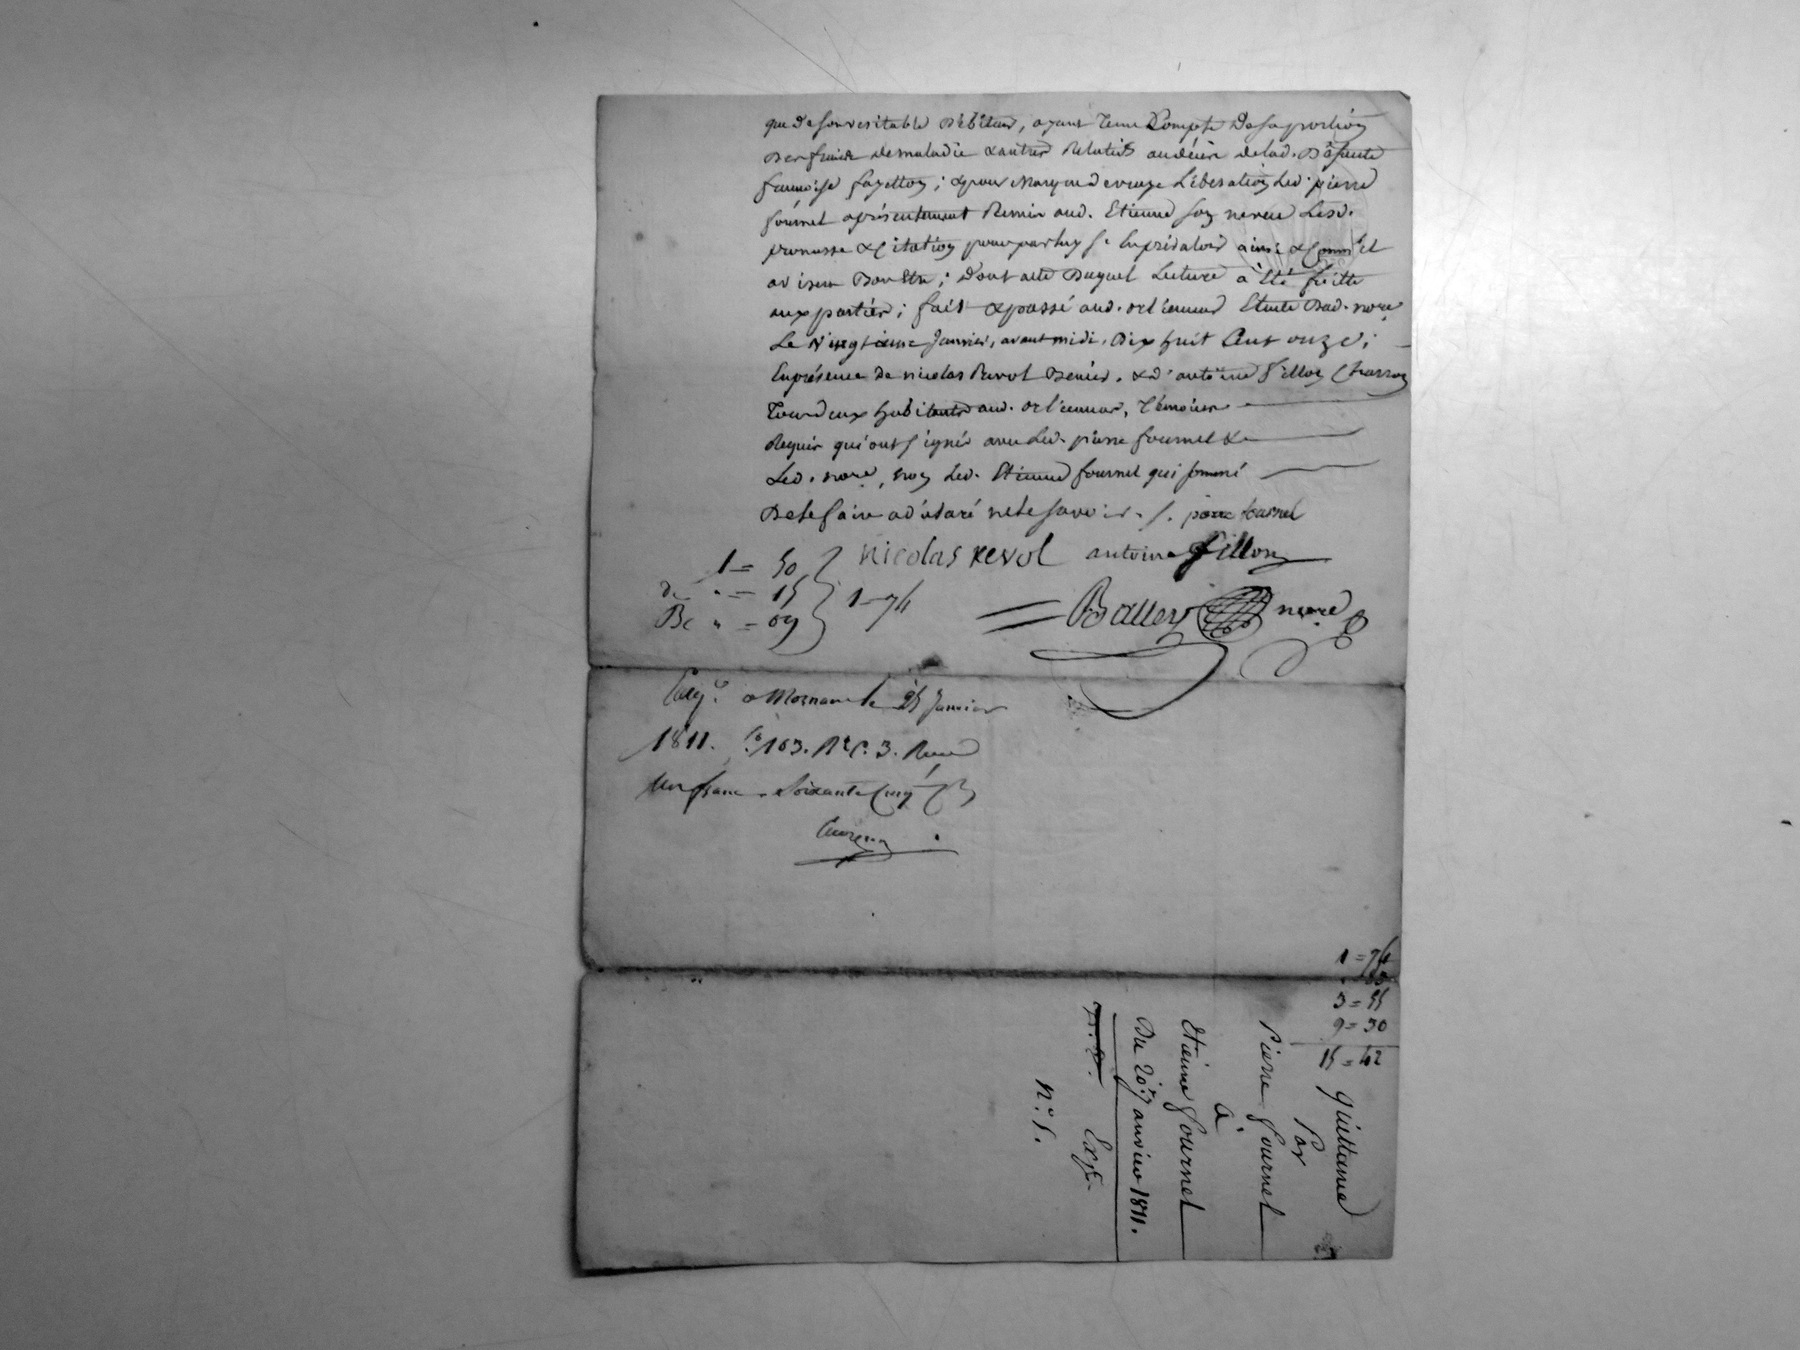 que de son veritable débiteur, ayant tenu Compte de sa portion
des frais de maladie & autres Relatifs au décès de lad. Défunte
françoise fayolloz ; & pour marque de vraye Libération Led. pierre
fournel a présentement Remis aud. Etienne son neveu Lesd.
promesse & Citation pour par luy s'en prévaloir ainsi & Comm'il
avisera Bon Etre ; Dont acte Duquel Lecture a Eté faitte
aux parties ; fait & passé aud. orliénnas Etude Dud. nore
Le vingtième Janvier, avant midi, Dix huit Cent onze ;
En présence de nicolas Revol & d'antoine fillon Charron
Tous deux habitants aud. orliénnas, témoins
Requis qui ont signés avec Led. pierre fournel &
Led. nore, non Led. Etienne fournel qui sommé
De le faire a déclaré ne le savoir. /. pierre fournel
nicolas revol antoine fillon
1 = 50
de " = 15
Be " = 09
1 = 74
Ballery nore
Enrgé a Mornant le 25 Janvier
1811. fo 103. Ro C. 3. Recu
Un franc Soixante Cinq
1 = 74
3 = 55
9 = 30
15 = 42
Quittance
Par
Pierre fournel
à
Etienne fournel
Du 20e Janvier 1811.
Expn
n.º 5.